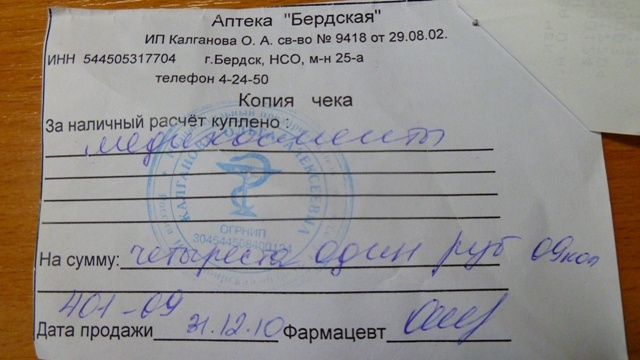 Аптека "Бердская"
ИП Калганова О. А. св-во № 9418 от 29.08.02.
ИНН 544505317704 г.Бердск, НСО, м-н 25-а
телефон 4-24-50
Копия чека
За наличный расчёт куплено :
медикаменты
КАЛГАНОВА АЛЕКСЕЕВНА
ОГРНИП
На сумму: четыреста один руб 09коп
401-09
Дата продажи 31.12.10 Фармацевт